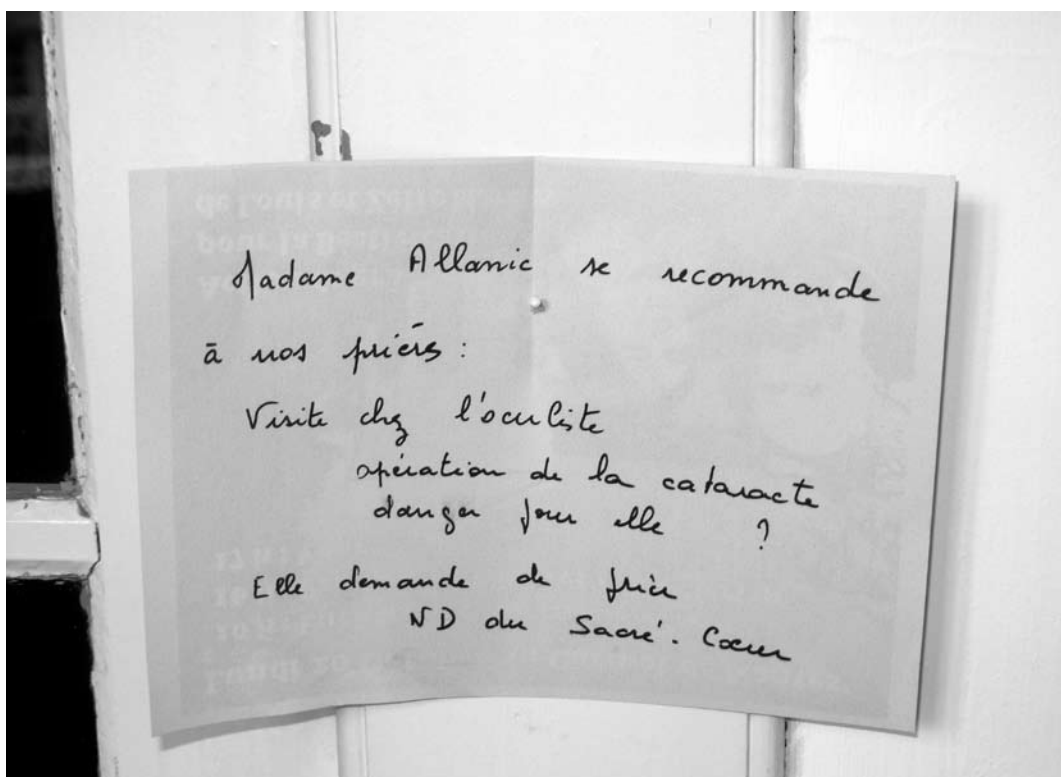 Madame Allanic se recommande
à nos prières :
Visite chez l'oculiste
opération de la cataracte
danger pour elle ?
Elle demande de prier
ND du Sacré-Cœur